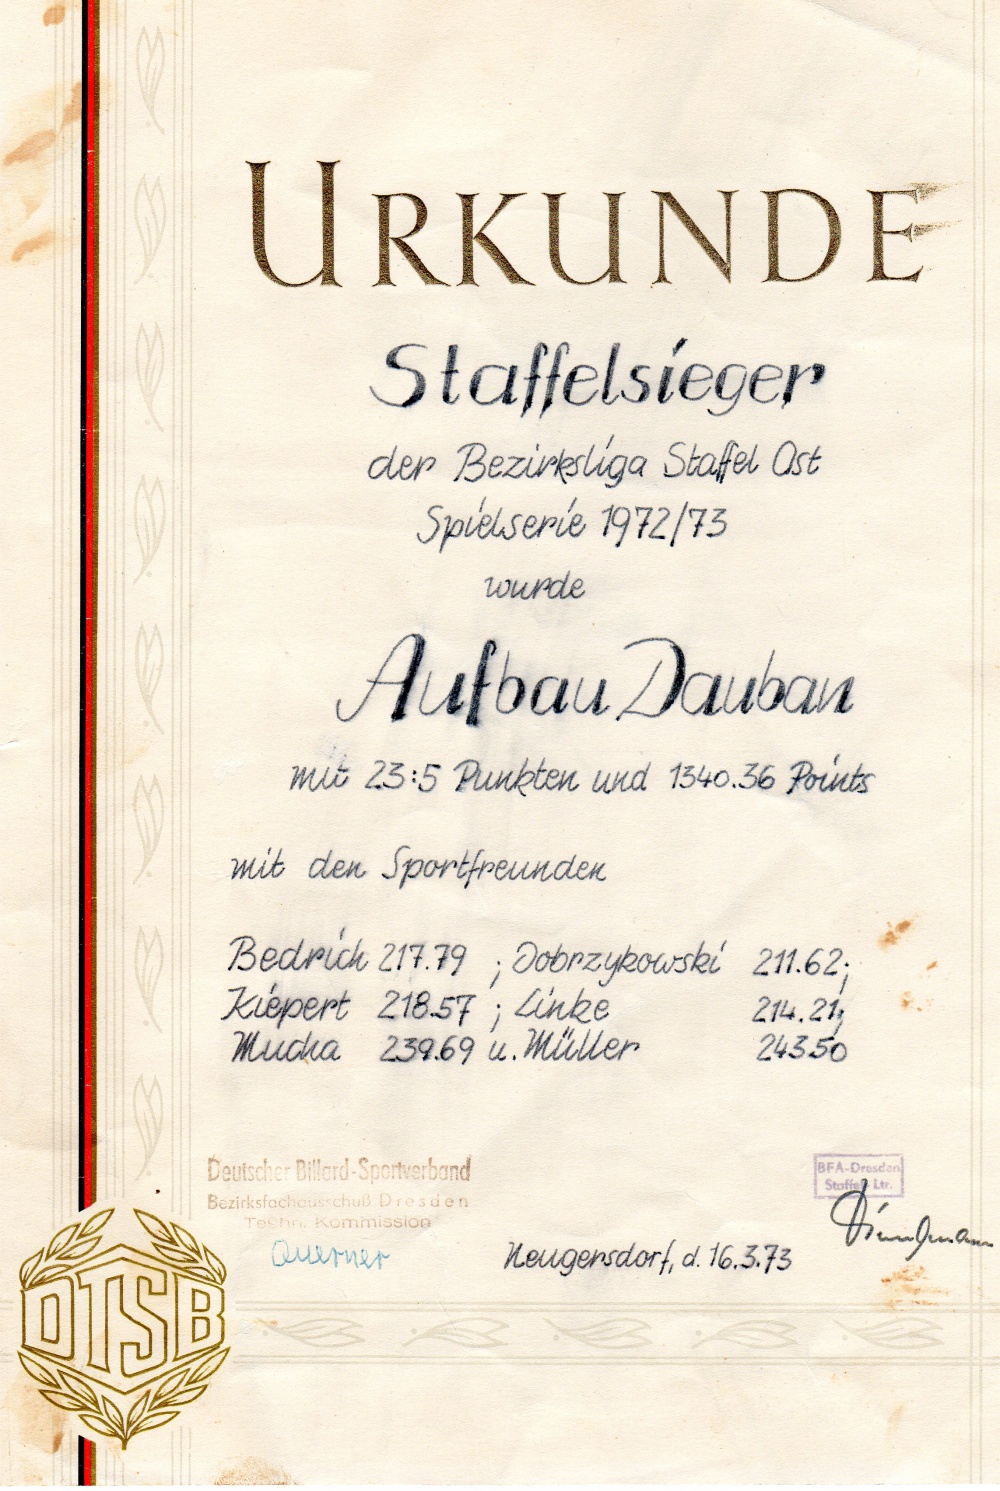 URKUNDE
Staffelsieger
der Bezirksliga Staffel Ost
Spielserie 1972/73
wurde
Aufbau Dauban
mit 23:5 Punkten und 1340.36 Points
mit den Sportfreunden
Bedrich 217.79 ; Dobrzykowski 211.62;
Kiepert 218.57 ; Linke 214.21;
Mucha 239.69 u. Müller 243.50
Deutscher Billard-Sportverband
Bezirksfachausschuß Dresden
Techn. Kommission
Querner
BFA-Dresden
Staffel-Ltr.
Neugersdorf, d. 16.3.73
DTSB